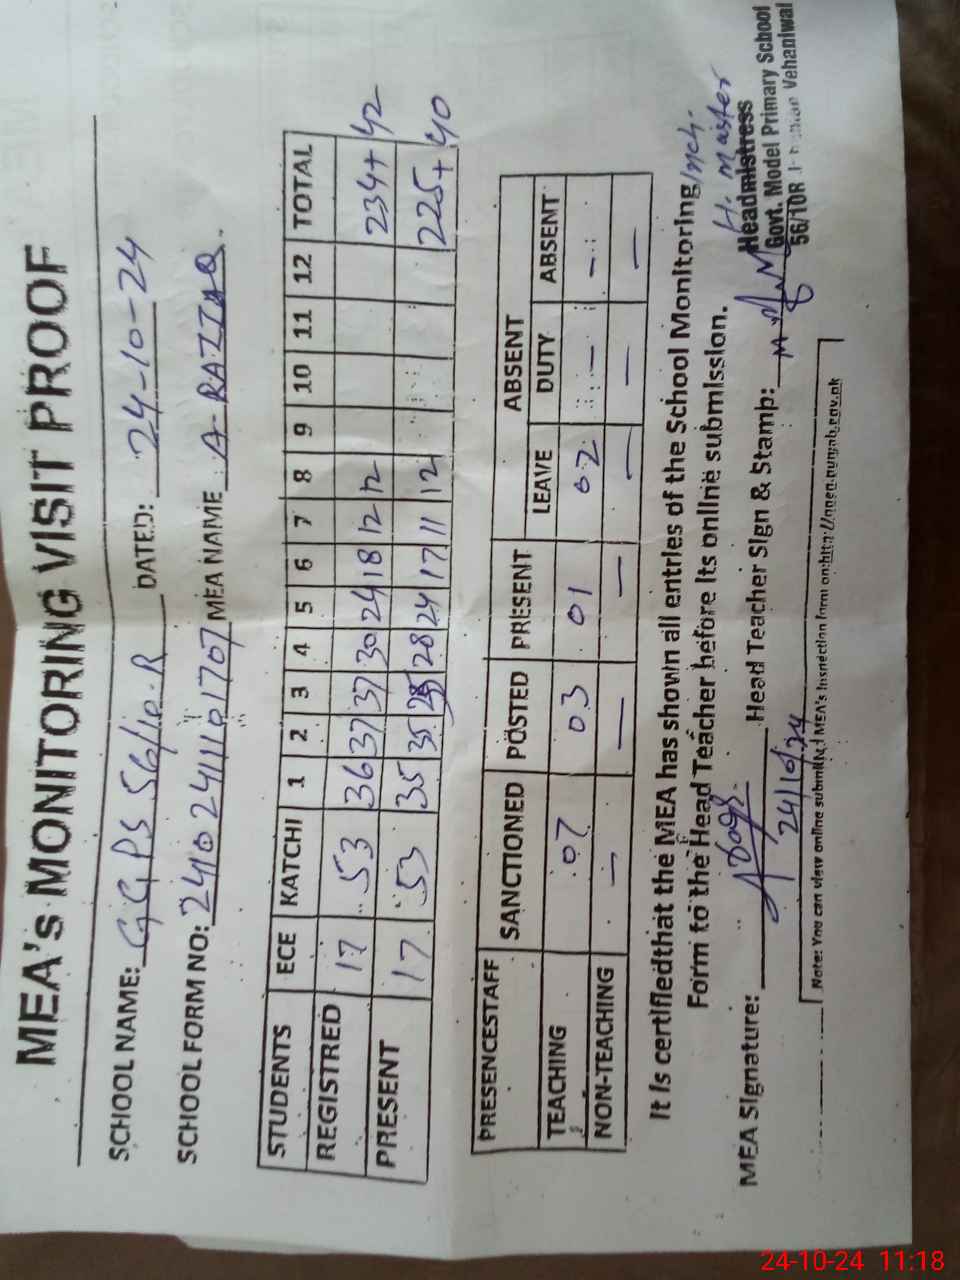 MEA's MONITORING VISIT PROOF
SCHOOL NAME: GGPS 56/10.R DATED: 24-10-24
SCHOOL FORM NO: MEA NAME A-RAZZAQ.
STUDENTS ECE KATCHI 1 2 3 4 5 6 7 8 9 10 11 12 TOTAL
REGISTRED 17 53 36 37 37 30 24 18 12 12 234+42
PRESENT 17 53 35 35 28 24 17 11 12 225+40
PRESENCESTAFF SANCTIONED POSTED PRESENT ABSENT
LEAVE DUTY ABSENT
TEACHING 07 03 01 02 - -
NON-TEACHING - - - - - -
It is certifiedthat the MEA has shown all entries of the School Monitoring
Form to the Head Teacher before its online submission.
Inch.
H. Master
MEA Signature: Head Teacher Sign & Stamp:
24/10/24
Headmistress
Govt. Model Primary School
56/10R Vehaniwal
Note: You can view online submitted MEA's Insnection form on:
24-10-24 11:18